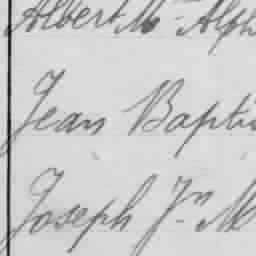 Albert Mc Alph
Jean Bapti
Joseph Jn M